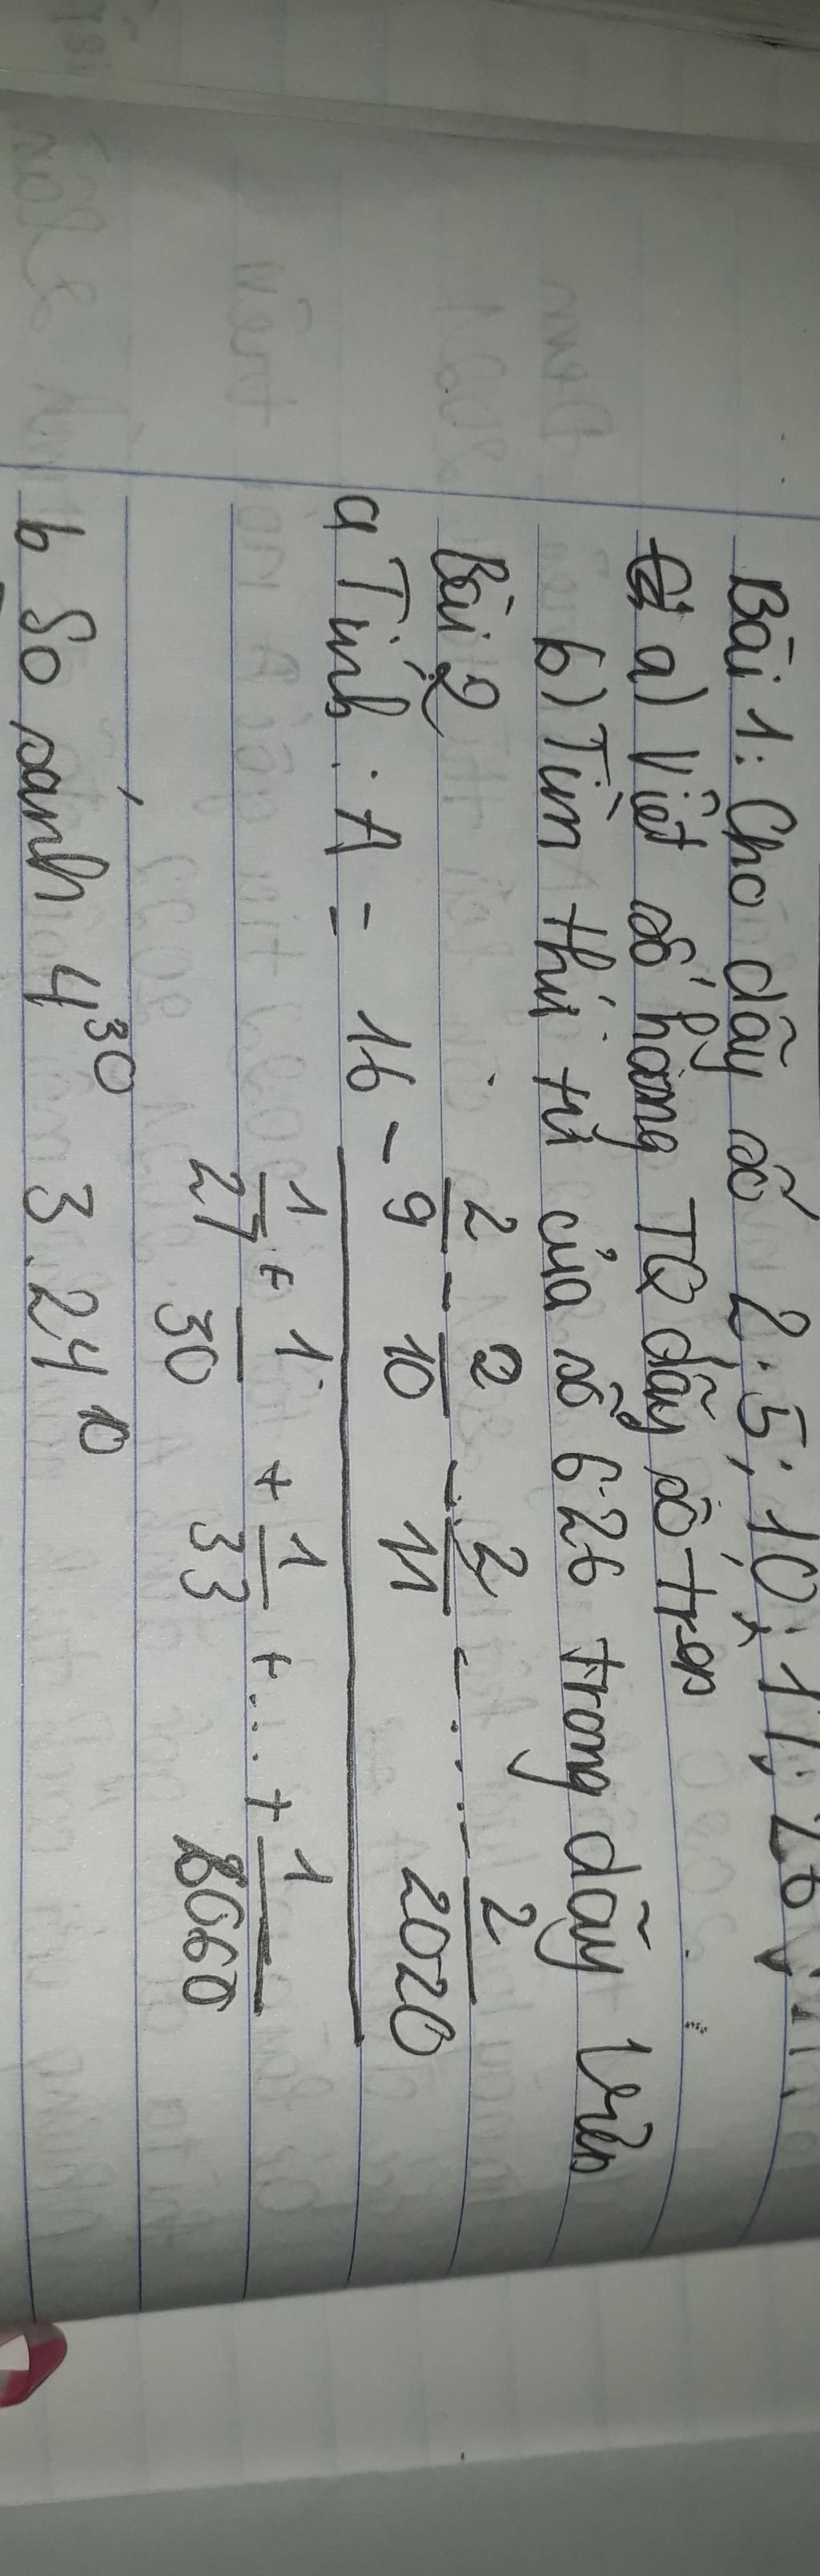 Bài 1: Cho dãy số 2; 5; 10; 17; 26; ...
a) Viết số hạng TQ dãy số trên
b) Tìm thứ tự của số 626 trong dãy trên
Bài 2
a Tính: A = (16 - 2/9 - 2/10 - 2/11 - .... - 2/2020) / (1/27 + 1/30 + 1/33 + ... + 1/6060)
b So sánh 4^30 3.24^10